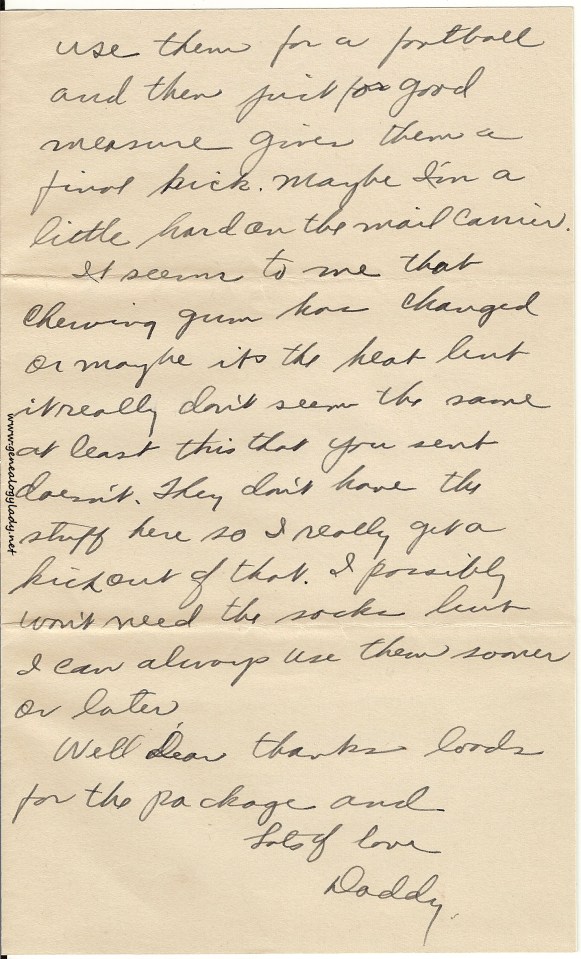 use them for a football
and then just for good
measure gives them a
final kick. Maybe I'm a
little hard on the mail carrier.
It seems to me that
chewing gum has changed
or maybe its the heat but
it really don't seem the same
at least this that you sent
doesn't. They don't have the
stuff here so I really get a
kick out of that. I possibly
won't need the socks but
I can always use them sooner
or later.
Well Dear thanks loads
for the package and
Lots of love
Daddy.
www.genealogylady.net